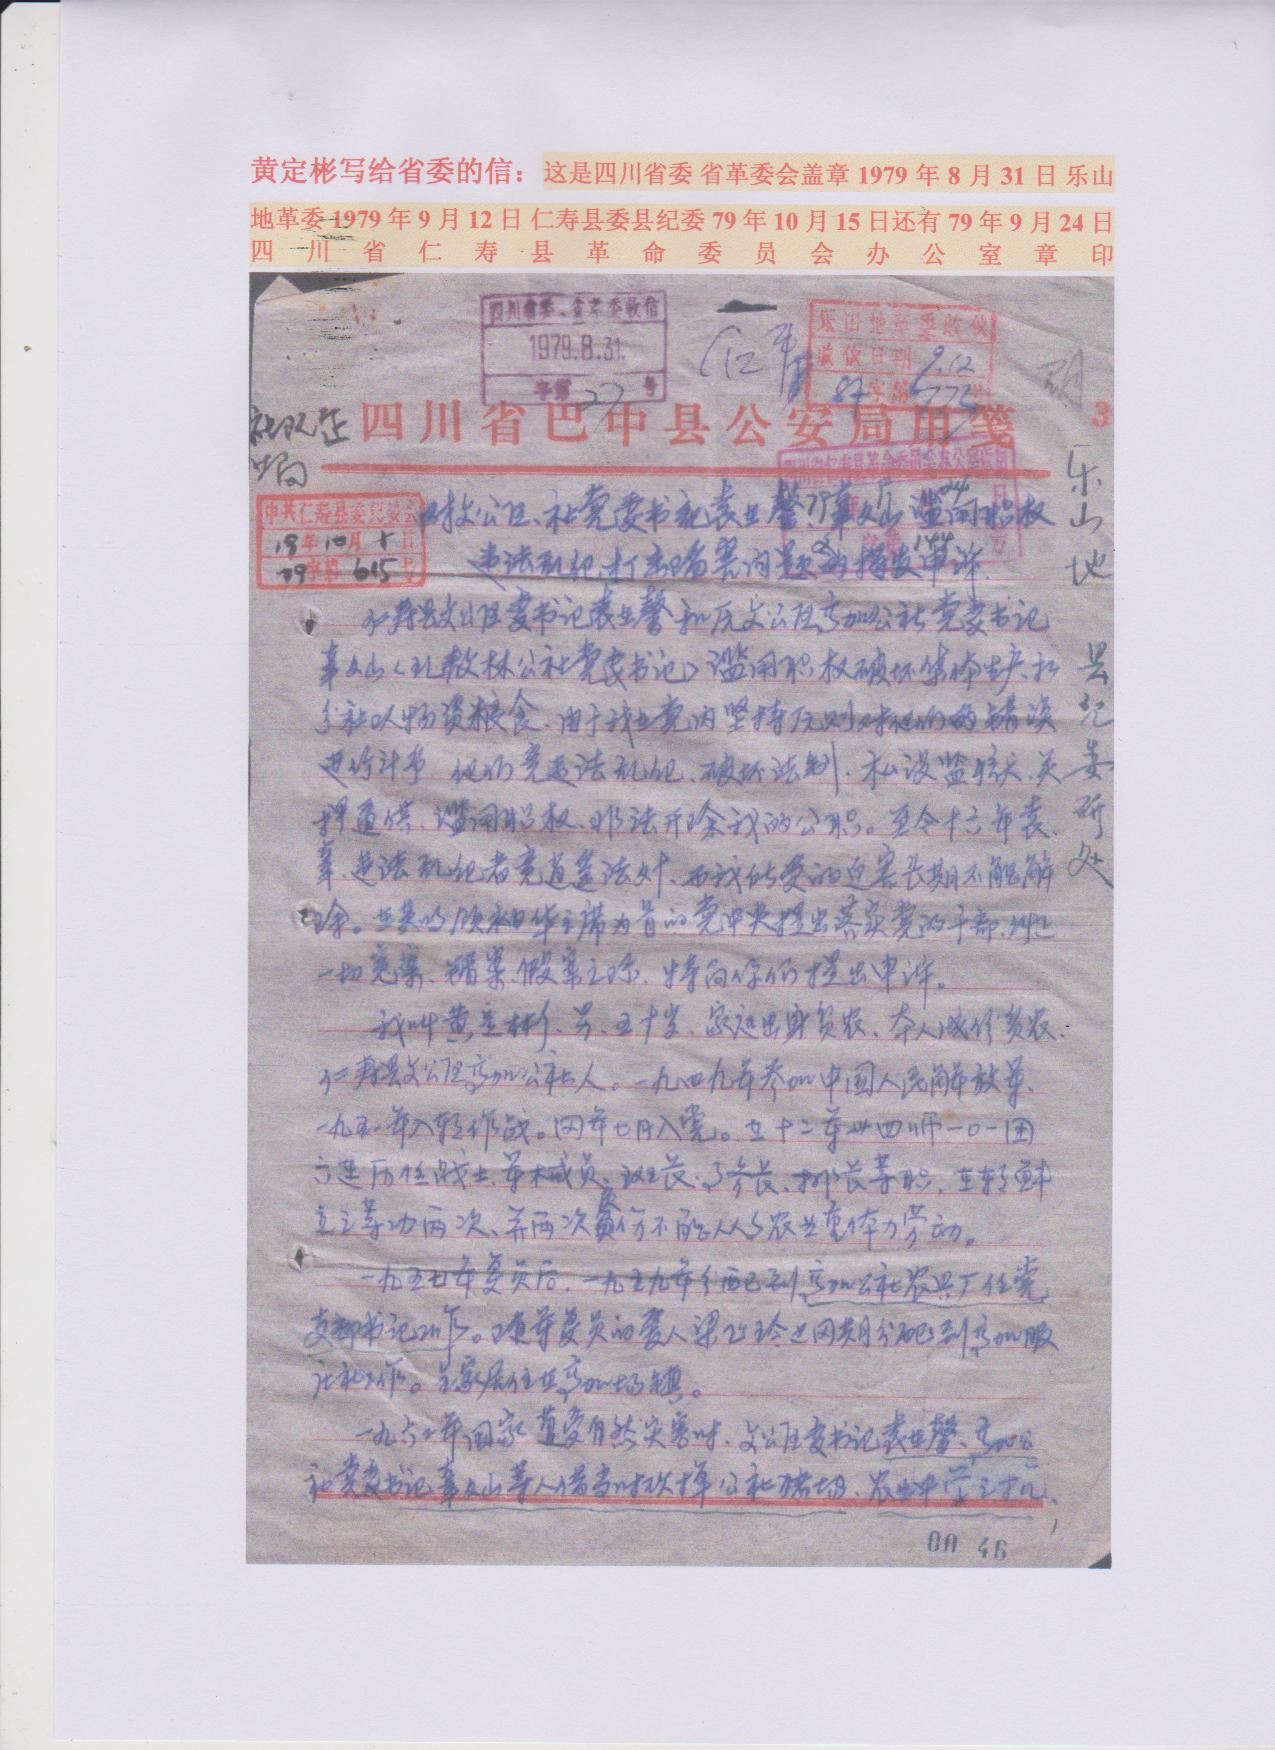 黄定彬写给省委的信：这是四川省委 省革委会盖章 1979 年 8 月 31 日 乐山
地革委 1979 年 9 月 12 日 仁寿县委县纪委 79 年 10 月 15 日还有 79 年 9 月 24 日
四川省仁寿县革命委员会办公室章印
四川省委、省革委收信
1979.8.31.
字第 27 号
乐山地革委收
9.12
字第
社队企
四川省巴中县公安局用笺
3
乐山地
县纪委
四川省仁寿县革命委员会办公室
中共仁寿县委纪委会
19 年 10 月 日
79 字第 615 号
对文公区、社党委书记袁 馨、辜文山滥用职权
违法乱纪、打击陷害问题的揭发申诉
仁寿县文公区委书记袁 馨和原文公区 加公社党委书记
辜文山（现 林公社党委书记）滥用职权破坏集体生产、私
分社队物资粮食、由于我在党内坚持原则对他们的错误
进行斗争、他们竟违法乱纪、破坏法制、私设监 、关
押逼供、滥用职权、非法开除我的公职。至今十六年袁、
辜、违法乱纪者竟逍遥法外、而我所受的迫害长期不能解
除。在英明领袖华主席为首的党中央提出落实党的干部、纠正
一切冤案、错案、假案之际、特向你们提出申诉。
我叫黄定彬、男、五十岁、家庭出身贫农、本人成份贫农、
仁寿县文公区 加公社人。一九四九年参加中国人民解放军、
一九五一年入朝作战。同年七月入党。在十二军卅四师一〇一团
六连历任战士、军械员、班长、 长、排长等职、在朝鲜
立三等功两次、并两次负伤不能从事农业重体力劳动。
一九五七年复员后、一九五九年分配到 加公社农具厂任党
支部书记工作。随军复员的爱人梁 玲也同期分配到 加服
社工作。全家居住在 加场镇。
一九六二年国家遭受自然灾害时、文公区委书记袁 馨、 加公
社党委书记辜文山等人借当时砍掉公社猪场、农业中学之机、
00 46